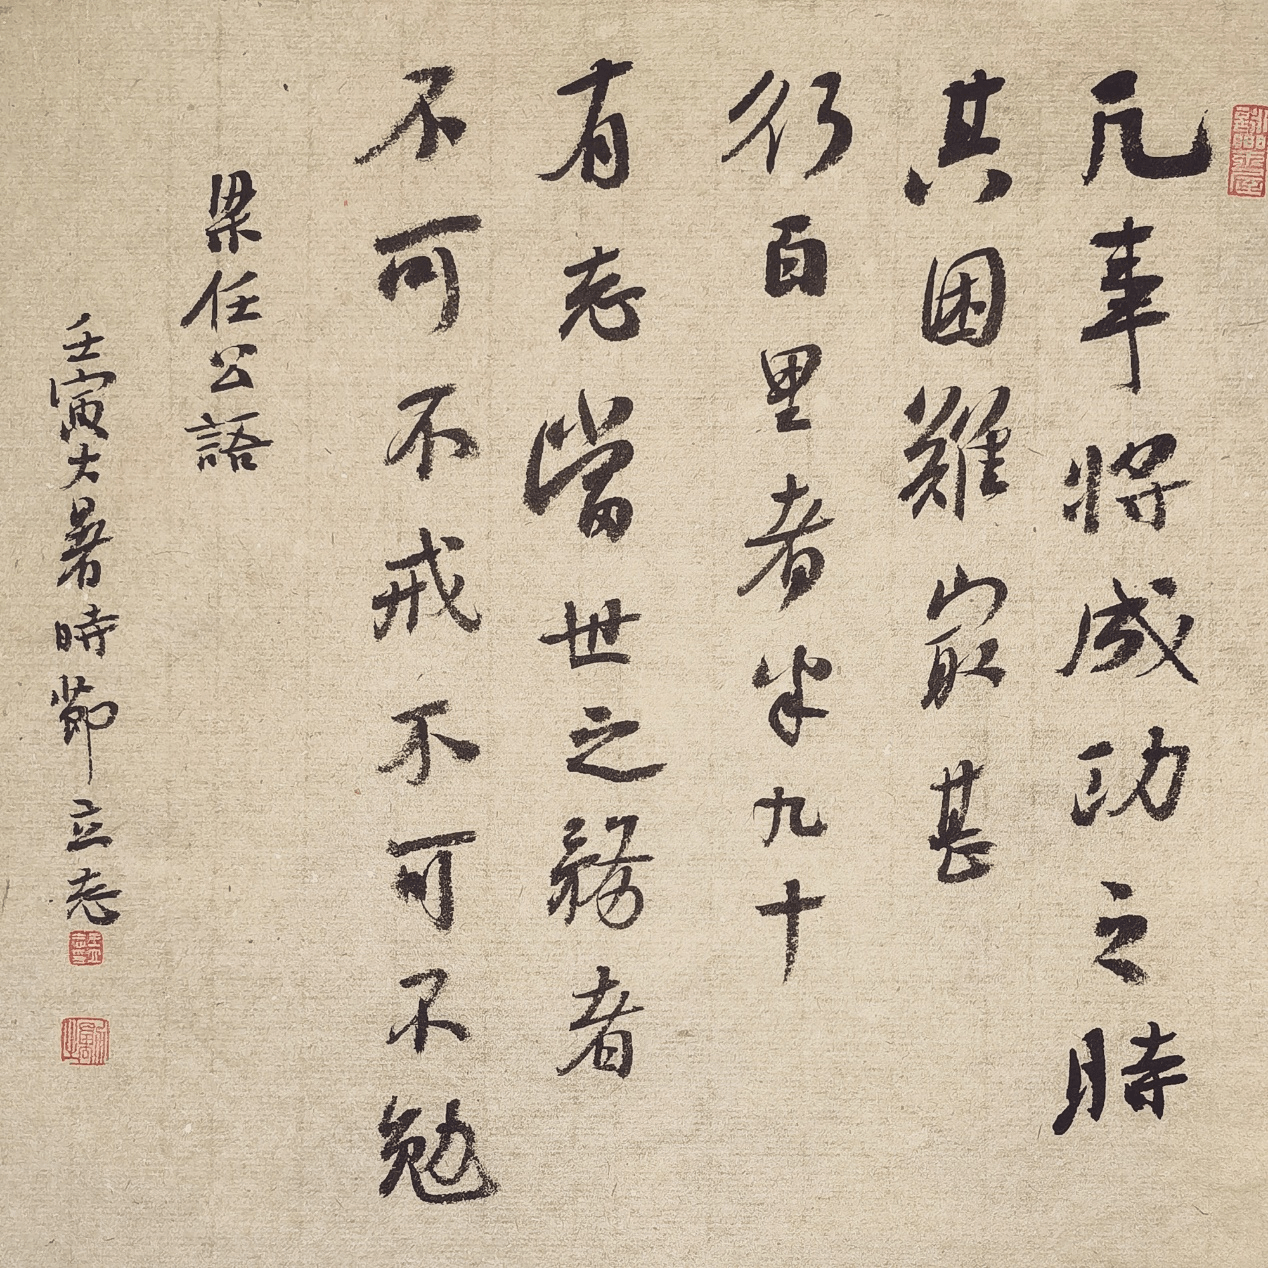 凡事将成功之時
其困難最甚
行百里者半九十
有志當世之務者
不可不戒不可不勉
梁任公語
壬寅大暑時節立志